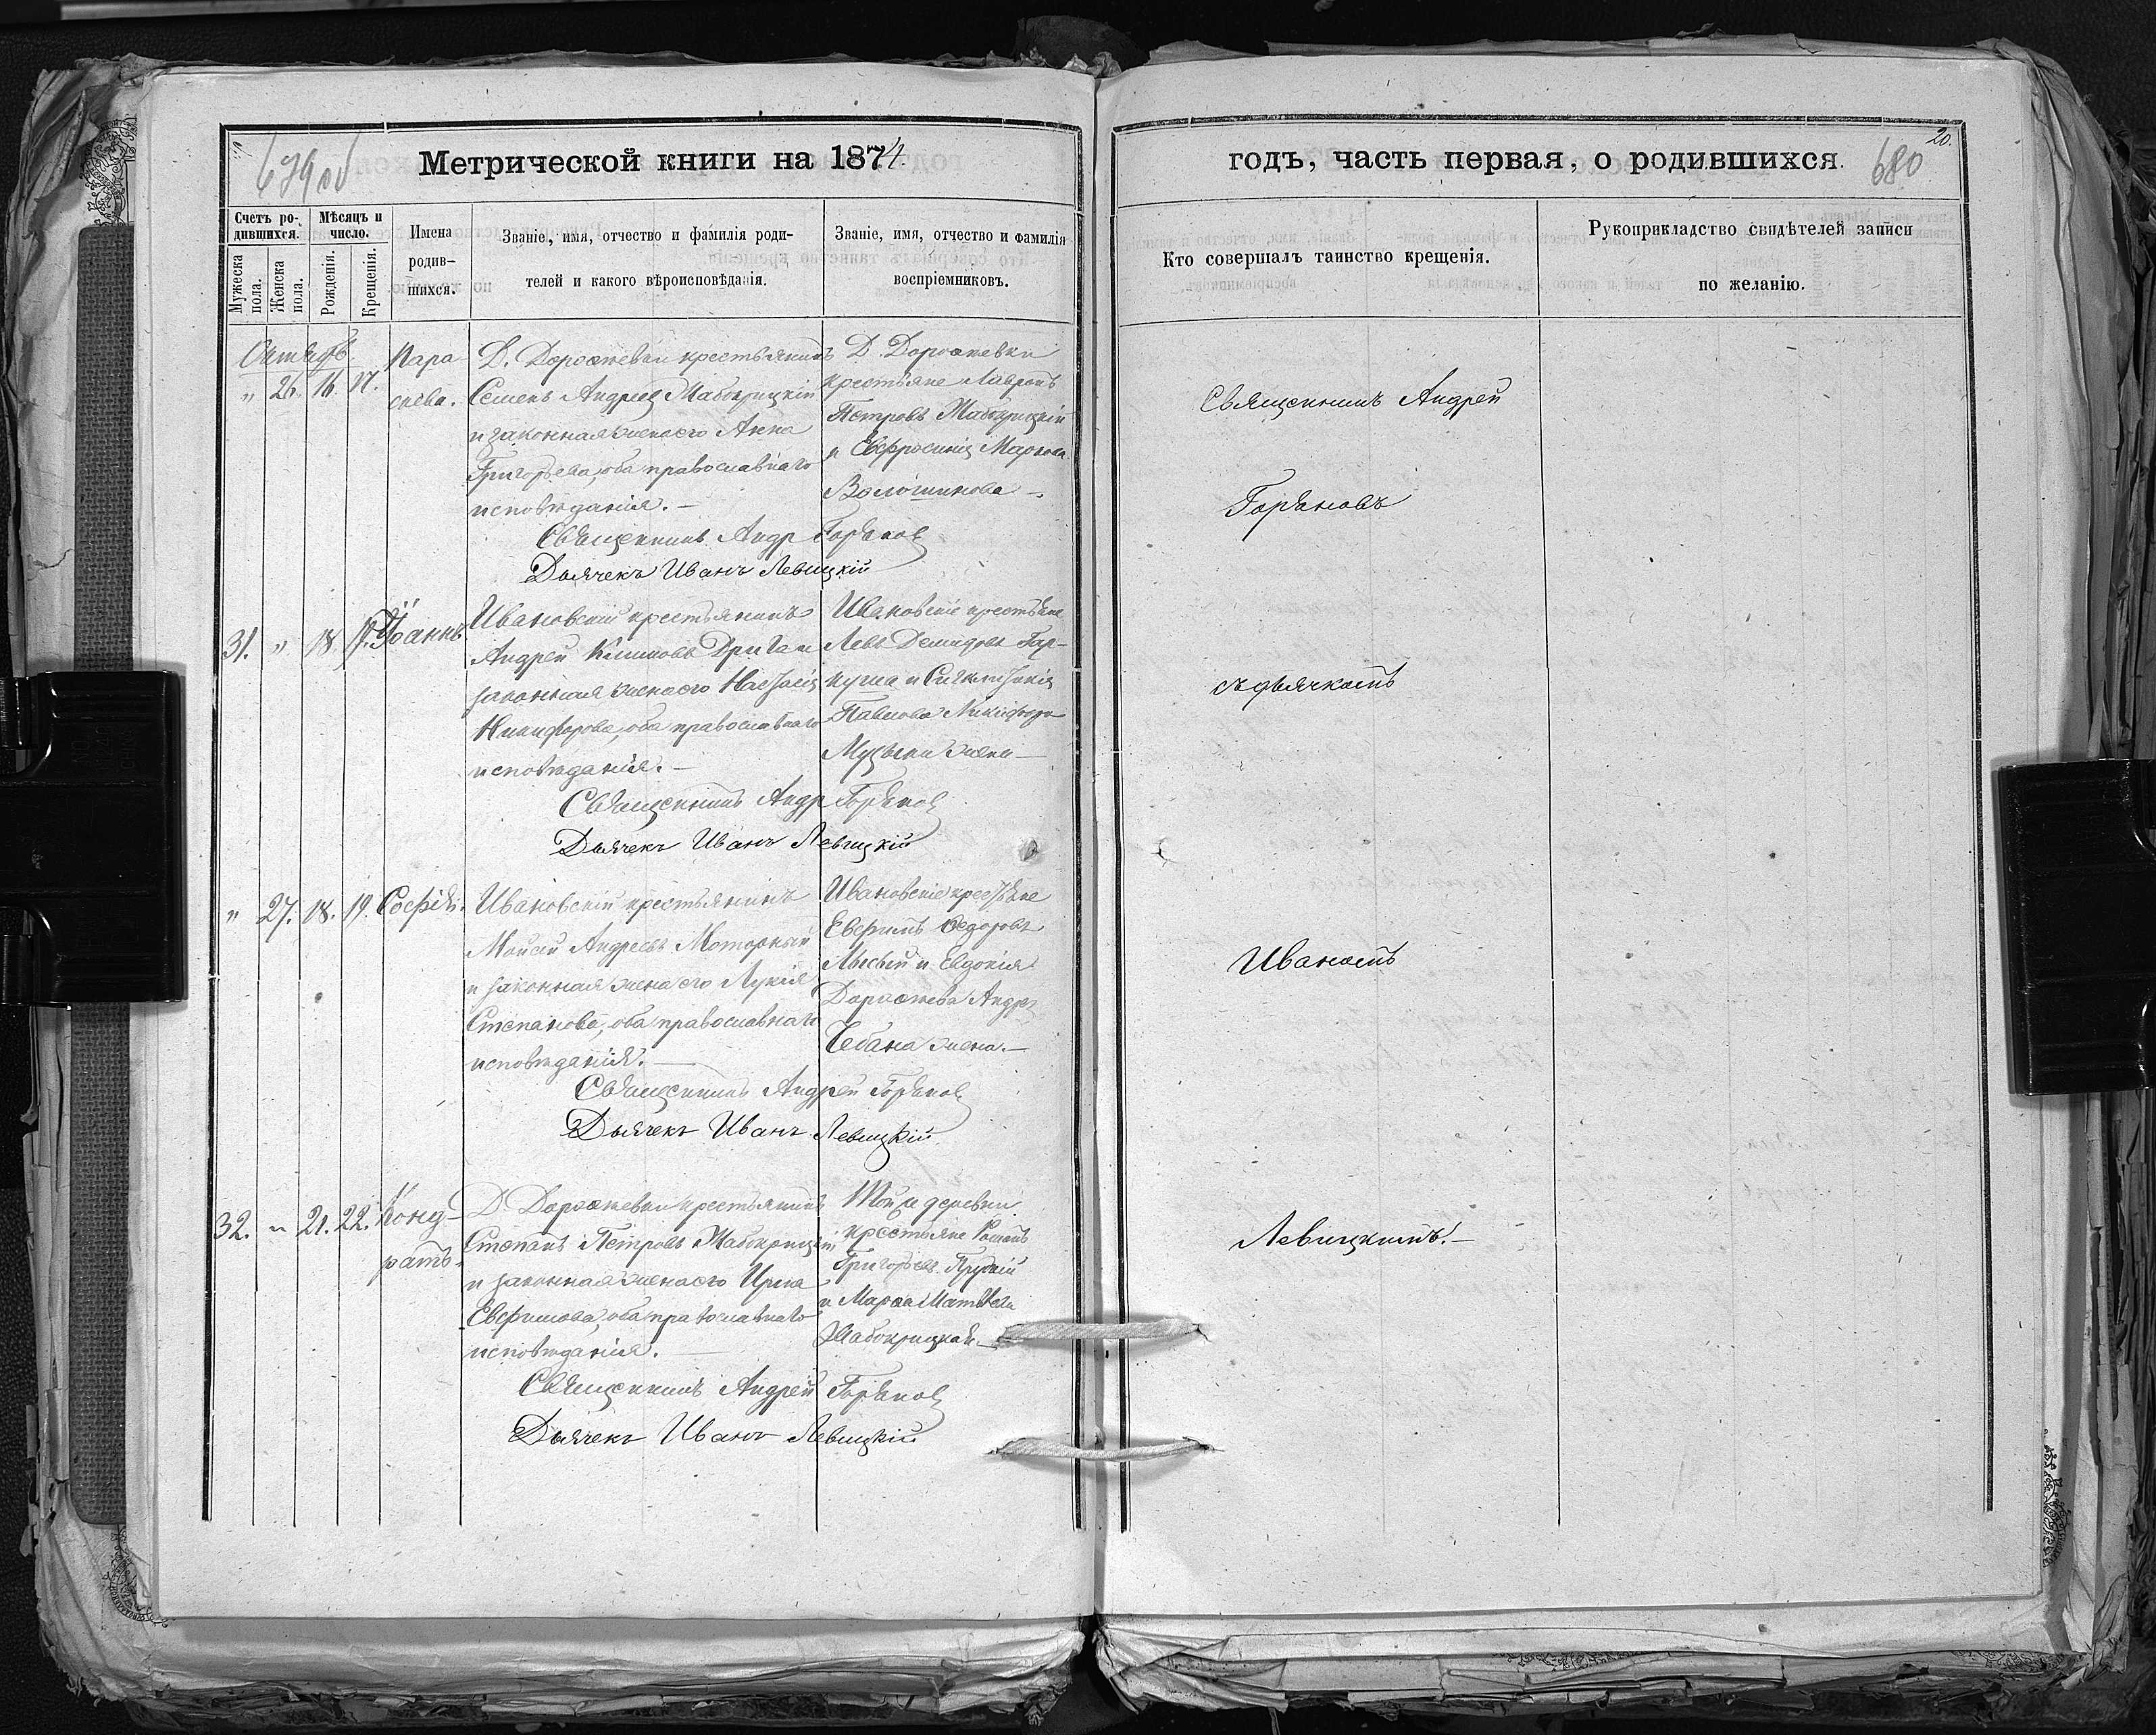 679 об
Метрической книги на 1874
Счетъ ро-
дившихся.
Мѣсяцъ и
число.
Мужеска
пола.
Женска
пола.
Рожденія.
Крещенія.
Имена
родив-
шихся.
Званіе, имя, отчество и фамилія роди-
телей и какого вѣроисповѣданія.
Званіе, имя, отчество и фамилія
воспріемниковъ.
Октябрь
" 26. 16. 17.
Пара
скева.
Д. Дорожевки крестьянинъ
Семенъ Андреев Жабокрицкій
и законная жена его Анна
Григорьева, оба православнаго
исповѣданія. —
Д. Дорожевки
крестьяне
Петровъ Жабокрицкій
и Евфросинія Маркова
Волошинова —
Священникъ Андр Горянов
Дьячекъ Иванъ Левицкій
31. " 18. 19. Іоаннъ
Ивановскій крестьянинъ
Андрей Климовъ и
законная жена его Настасія
Никифорова, оба православнаго
исповѣданія. —
Ивановскіе крестьяне
Левъ Демидовъ Гар-
куша и
Павлова Никифора
Музыки жена —
Священникъ Андр Горянов
Дьячекъ Иванъ Левицкій
" 27. 18. 19. Софія.
Ивановскій крестьянинъ
Моисей Андреевъ Моторный
и законная жена его Лукія
Степанова, оба православнаго
исповѣданія. —
Ивановскіе крестьяне
Евфимъ Ѳедоровъ
Лысый и Евдокія
Дорожева Андрея
Чебана жена. —
Священникъ Андрей Горянов
Дьячекъ Иванъ Левицкій
32. " 21. 22. Конд-
ратъ.
Д Дорожевки крестьянинъ
Степанъ Петровъ Жабокрицкій
и законная жена его Ирина
Евфимова, оба православнаго
исповѣданія. —
Той же деревни
крестьяне Романъ
Григорьев
и Марѳа Матвѣева
Жабокрицкая —
Священникъ Андрей Горянов
Дьячекъ Иванъ Левицкій
20.
680
годъ, часть первая, о родившихся.
Кто совершалъ таинство крещенія.
Рукоприкладство свидѣтелей записи
по желанію.
Священникъ Андрей
Горяновъ
съ дьячкомъ
Иваномъ
Левицкимъ. —